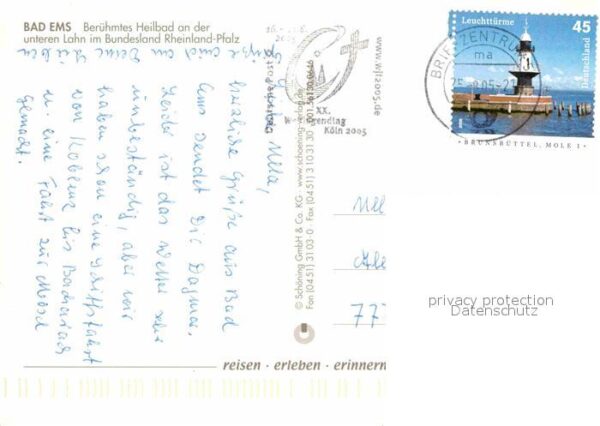 BAD EMS Berühmtes Heilbad an der
unteren Lahn im Bundesland Rheinland-Pfalz
Meta,
herzliche Grüße aus Bad
Ems sendet Dir Dagmar.
Leider ist das Wetter sehr
unbeständig, aber wir
haben schon eine Schiffsfahrt
von Koblenz bis Bacharach
u. eine Fahrt zur Mosel
gemacht.
Grüße auch an Deine Lieben
© Schöning GmbH & Co. KG · www.schoening-verlag.de
Fon (04 51) 3 10 3-0 · Fax (04 51) 3 10 31 30
Deutsche Post AG
2005
www.wjt2005.de
XX.
Weltjugendtag
Köln 2005
BRIEFZENTRUM
ma
Leuchttürme 45
Deutschland
BRUNSBÜTTEL, MOLE 1
77
privacy protection
Datenschutz
reisen · erleben · erinnern